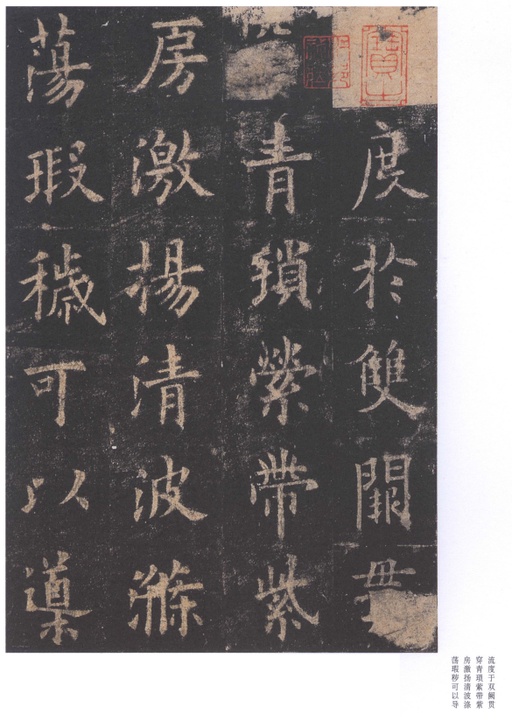 度於雙闕
青瑣縈帶紫
房激揚清波滌
蕩瑕穢可以導
流度于双阙贯
穿青琐萦带紫
房激扬清波涤
荡瑕秽可以导